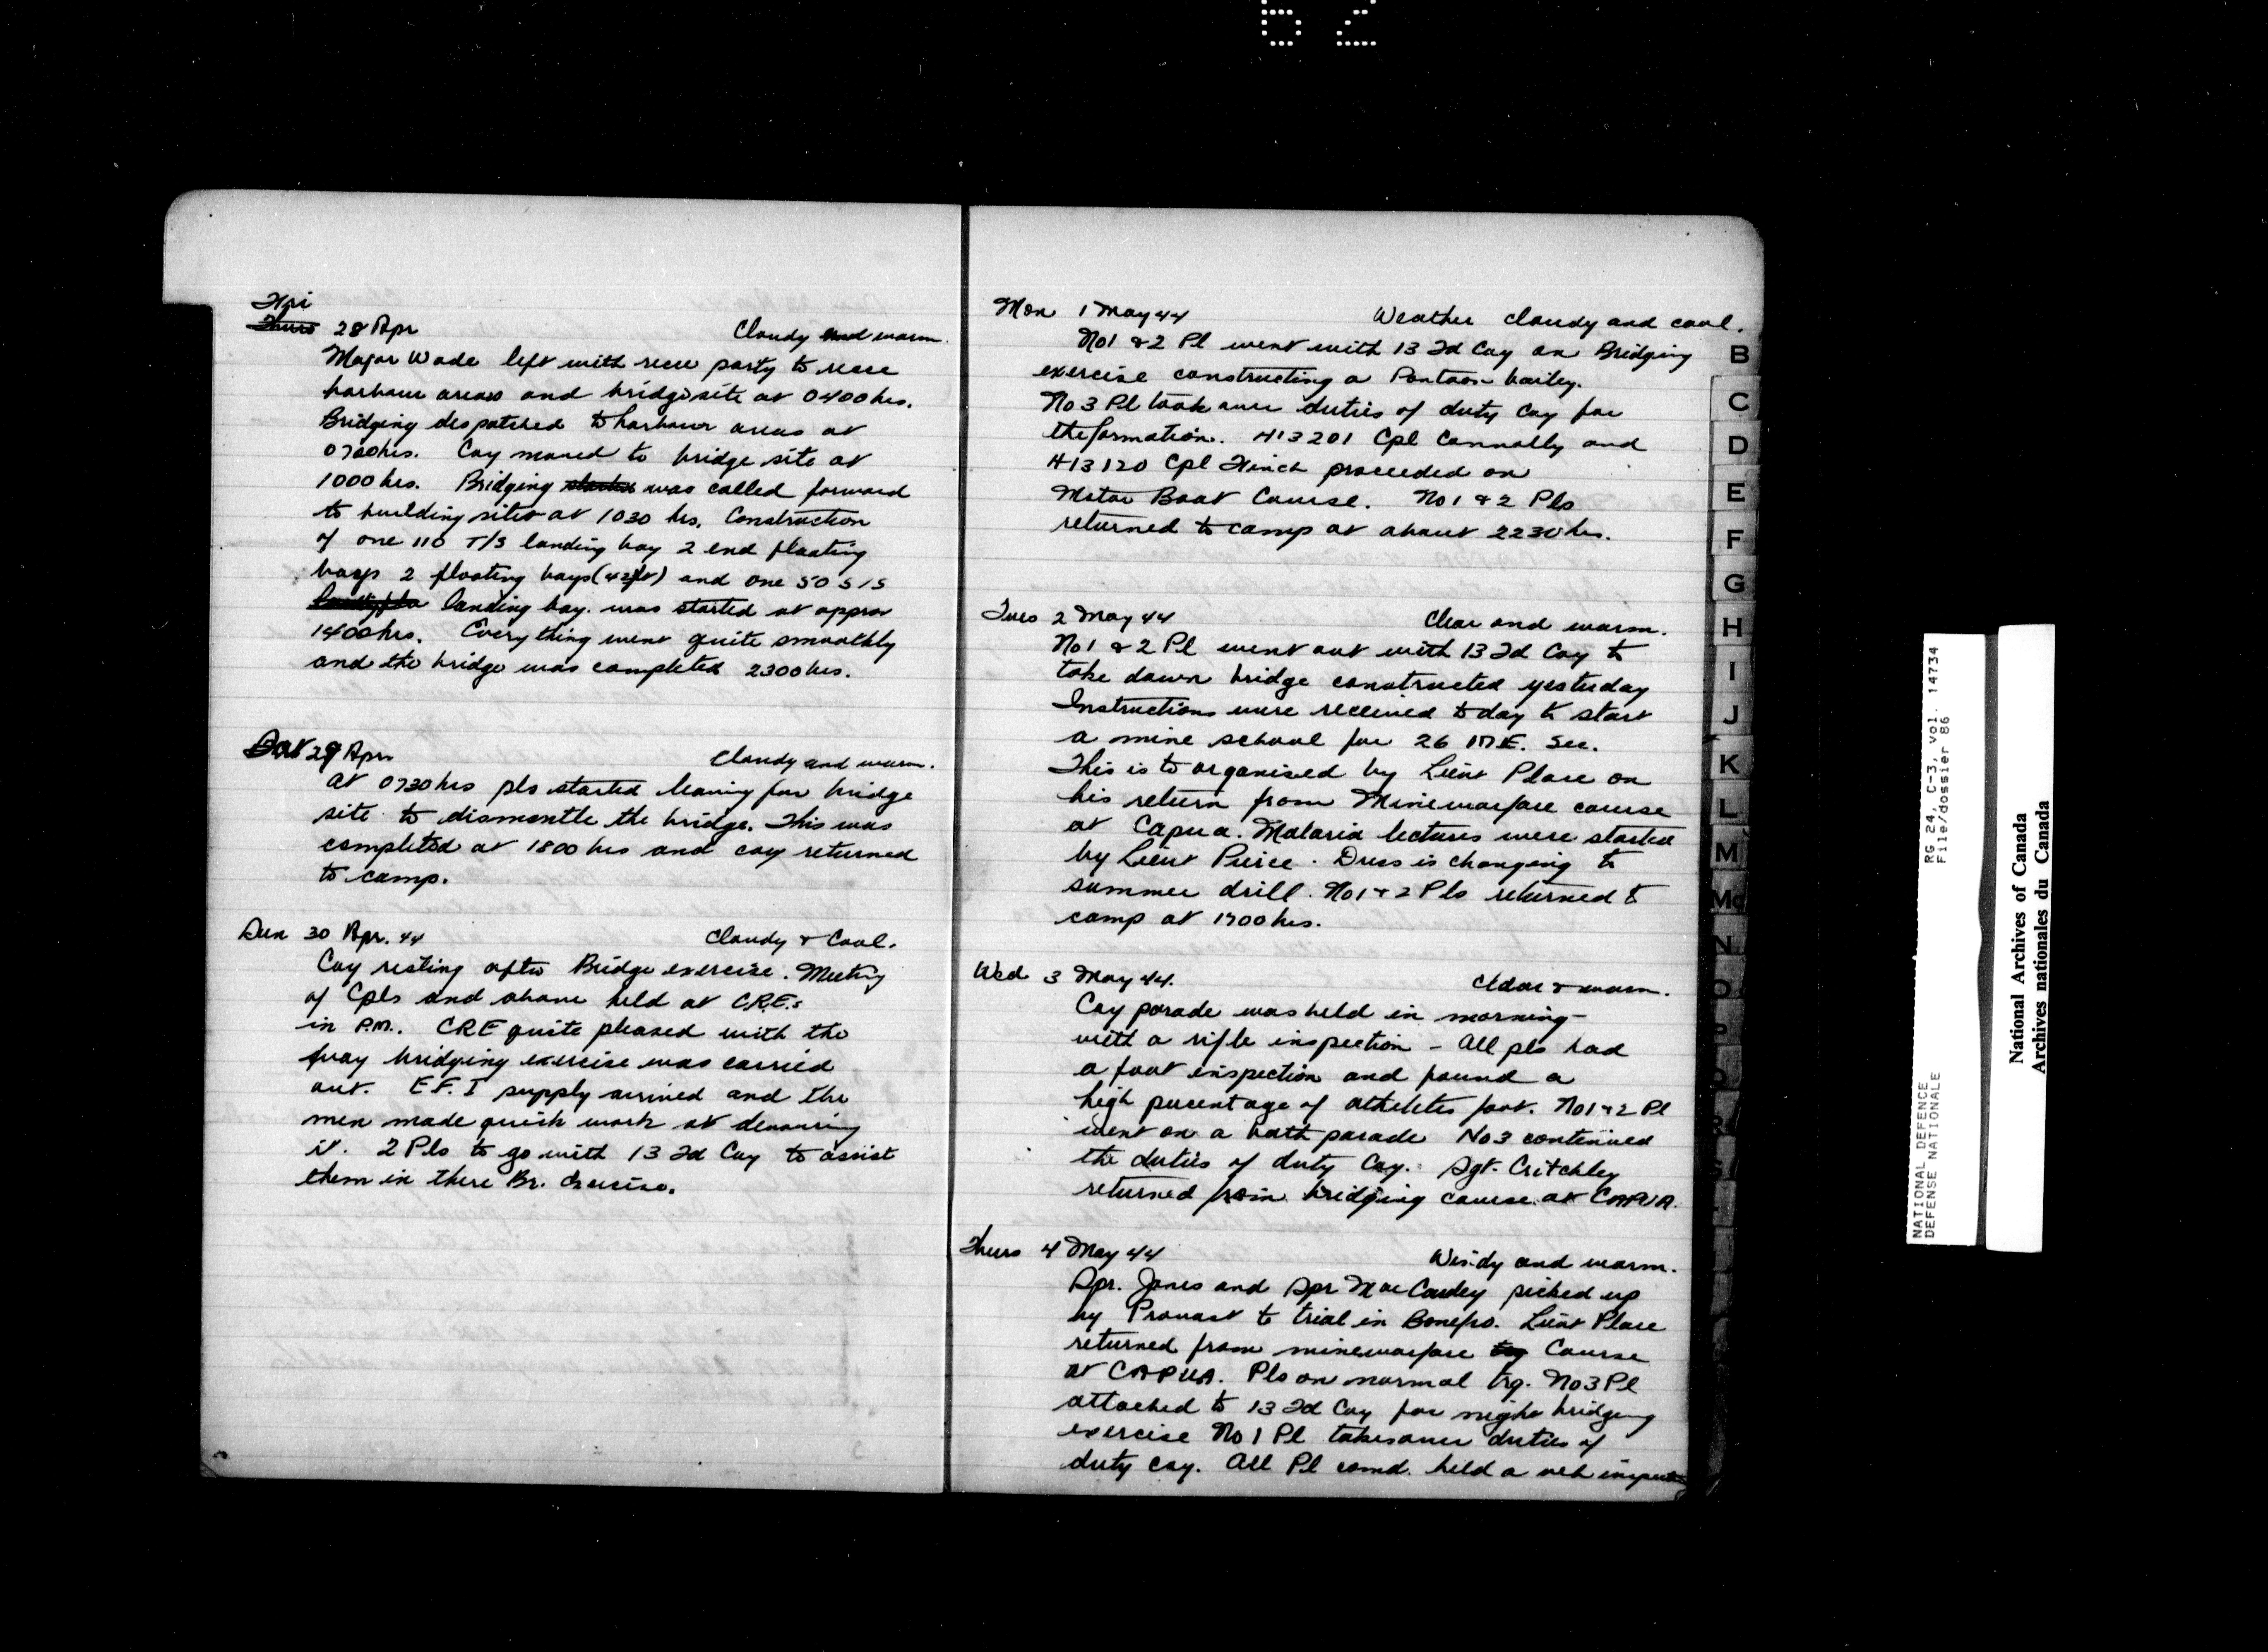 52
Fri
Thurs 28 Apr Cloudy and warm.
Major Wade left with rece party to rece
harbour areas and bridgesite at 0400 hrs.
Bridging despatched to harbour areas at
0720 hrs. Coy moved to bridge site at
1000 hrs. Bridging was called forward
to building sites at 1030 hrs. Construction
of one 110 T/S landing bay 2 end floating
bays 2 floating bays (42ft) and one 50 S/S
landing bay. was started at approx
1400 hrs. Every thing went quite smoothly
and the bridge was completed 2300 hrs.
Sat 29 Apr Cloudy and warm.
At 0730 hrs pls started leaving for bridge
site to dismantle the bridge. This was
completed at 1800 hrs and coy returned
to camp.
Sun 30 Apr. 44 Cloudy & Cool.
Coy resting after Bridge exercise. Meeting
of Cpls and above held at C.R.E.s
in P.M.. CRE quite pleased with the
way bridging exercise was carried
out. E.F.I supply arrived and the
men made quick work at devouring
it. 2 Pls to go with 13 Fd Coy to assist
them in there Br. Exercise.
Mon 1 May 44 Weather cloudy and cool.
No1 & 2 Pl went with 13 Fd Coy on Bridging
exercise constructing a Pontoon bailey.
No 3 Pl took over duties of duty coy for
the formation. H13201 Cpl Connolly and
H13120 Cpl Finch proceeded on
Motor Boat Course. No 1 & 2 Pls
returned to camp at about 2230 hrs.
Tues 2 May 44 Clear and warm.
No 1 & 2 Pl went out with 13 Fd Coy to
take down bridge constructed yesterday
Instructions were received today to start
a mine school for 26 M.E. Sec.
This is to organised by Lieut Place on
his return from Minewarfare course
at Capua. Malaria lectures were started
by Lieut Peirce. Dress is changing to
summer drill. No1 & 2 Pls returned to
camp at 1700 hrs.
Wed 3 May 44. Clear & warm.
Coy parade was held in morning
with a rifle inspection - All pls had
a foot inspection and found a
high percentage of atheletes foot. No1 & 2 Pl
went on a bath parade No3 continued
the duties of duty Coy. Sgt. Critchley
returned from bridging course at CAPUA.
Thurs 4 May 44 Windy and warm.
Spr. Jones and Spr MacCauley picked up
by Provost to trial in Bonefro. Lieut Place
returned from minewarfare trg Course
at CAPUA. Pls on normal trg. No3 Pl
attached to 13 Fd Coy for night bridging
exercise No 1 Pl takes over duties of
duty coy. All Pl comd. held a veh inspection
B
C
D
E
F
G
H
I
J
K
L
M
Mc
N
O
P
NATIONAL DEFENCE RG 24, C-3, vol. 14734
DEFENSE NATIONALE File/dossier 86
National Archives of Canada
Archives nationales du Canada